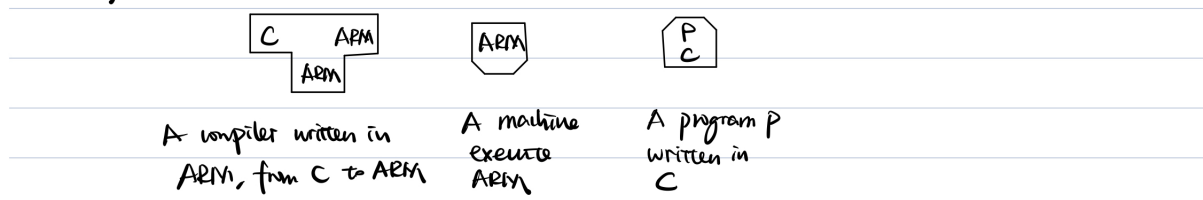 C ARM
ARM
ARM
P
C
A compiler written in
ARM, from C to ARM
A machine
execute
ARM
A program P
written in
C